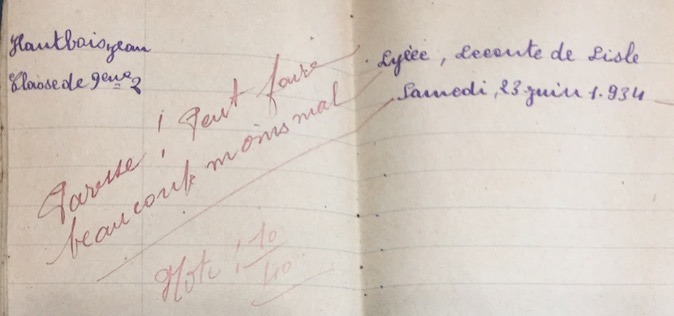 Hautbois Jean
Classe de 9eme 2
Lycée, Leconte de Lisle
Samedi, 23 juin 1.934
Paresse ! Peut faire
beaucoup moins mal
Note : 10/40